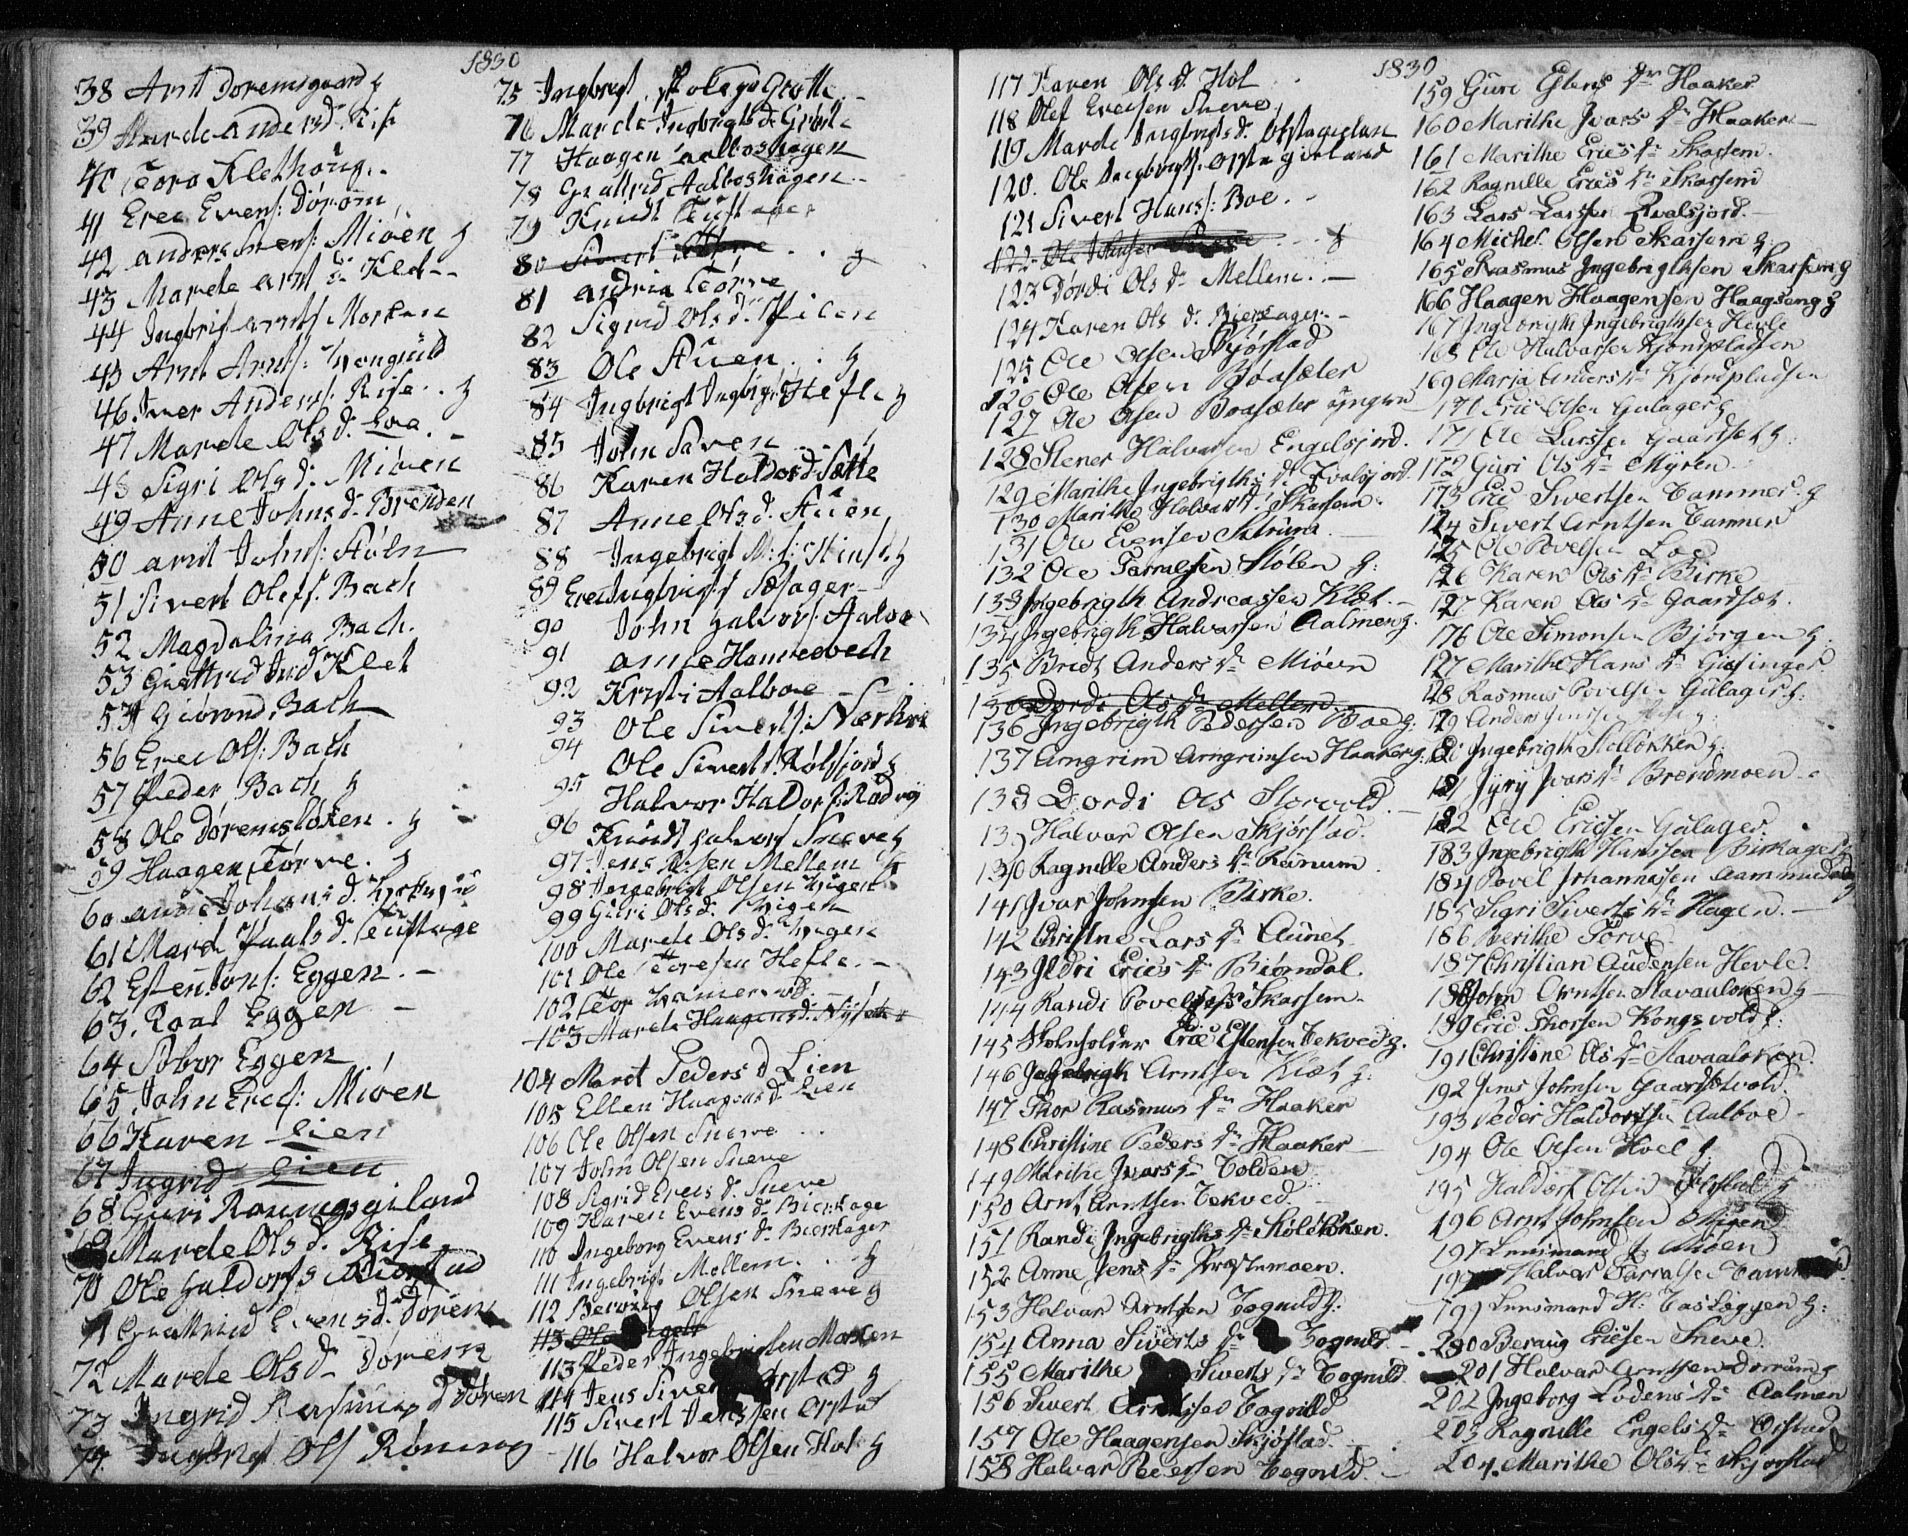 1830
38 Arnt Doremsgaard g
39 Marde Andersd. Rise
40 Tora Klethoug
41 Erec Evens: Dørom
42 Anders Ivers: Miøen g
43 Marete Arnt d: Klet -
44 Ingbrigt Arnts Morken
45 Arnt Arnts:
46. Iver Anders: Rise . . g
47 Marete Ols d. Loe. -
48 Sigri Ols d. Miøen
49 Anne Johns d. Brenden
50 Arnt Johns: Støln
51 Sivert Olefs. Bach
52 Magdalina Bach.
53 Giøttrid Klet
54 Giørond Bach
56 Erec Ols: Bach
57 Peder Bach g
58 Ole Doremsløken . g
59 Haagen Tørve. g
60 Anne Johans d.
61 Mard Paals d.
62 Esten Jons: Eggen. -
63. Roal Eggen -
64 Sober Eggen
65 John Erecs: Miøen
66 Karen Lien
67 Ingrid Lien
68 Guri Roningsgiland
Marde Ols d. Rise
70 Ole Haldors
71 Evens d. Doren
72 Marde Ols d. Dorem
73 Ingrid Rasmus d Doren
74 Ingbrigt Ols Røning
75 Ingbrigt
76 Marde Ingbrigts d. Grøtte
77 Haagen Aalboshagen
78 Giøttrid Aalboshagen -
79 Knudt
80 Sivert . . g
81 Andria Tørve
82 Sigrid Ols d.
83 Ole Stuen . . g
84 Ingbrigt Ingbrigt Hefle g
85 John Saven
86 Karen Haldors d Sætte
87 Anne Ols d. Stuen
88 Ingebrigt
89 Erec Ingbrigts Sæhager -
90 John Halvors: Aalboe
91 Anne Hammerbech
92 Kristi Aalboe -
93 Ole Siverts: Nærhoi
94
Ole Siverts: Rølsiord g
95 Halvor Haldors:
96 Knudt Halvors Sneve g
97. Jens Olsen Mellem
98 Ingebrigt Olsen Vigen
99 Guri Ols d. Vigen
100 Marete Ols d. Vigen
101 Ole Toresen Hefle. -
102 Tor
103 Marete Haagens d.
104 Maret Peders d Lien
105 Ellen Haagens d Lien
106 Ole Olsen Sneve . .
107 John Olsen Sneve
108 Sigrid Erecs d. Sneve
109 Karen Evens dr Bierkager
110 Ingeborg Evens dr Bierkager
111 Ingebrigt Mellem . . g
112 Beroug Olsen Sneve g
113 Ole
113 Peder Ingebrigtsen Morken
114 Jens Siver Ørstad g
115 Sivert Jenssen Ørstad
116 Halvor Olsen Hol g
1830
117 Karen Ols dr Hol
118 Olef Erecsen Sneve
119 Marde Ingbrigts d.
120. Ole Ingbrigts:
121 Sivert Hans: Boe . -
122 Ole Johnsen Sneve . . g
123 Dordi Ols dr Mellem . -
124 Karen Ols dr Bierkager -
125 Ole Olsen Skjøstad
126 Ole Olsen Boasæter
127 Ole Olsen Boasæter yngre
128 Stener Halvarsen Engelsjord.
129 Marithe Ingebrigths d. Kvalsjord.
130 Marithe Halvars d. Skarsem.
131 Ole Evensen
132 Ole Torralsen Stølen g:
133 Ingebrigth Andreassen Klæt. -
134 Ingebrigth Halvarsen Aalmen g.
135 Bredt Anders dr Miøen
136 Dordi Ols dr Mellem
136 Ingebrigth Pedersen Boe g:
137 Arngrim Arngrimsen Haaker g:
138 Dordi Ols Storvold.
139 Halvar Olsen Skjørstad.
140 Ragnille Anders dr Reinum
141 Ivar Johnsen Birke.
142 Christine Lars dr Aunet.
143 Ildri Erics dr Biørndal.
144 Randi Povels Skarsem.
145 Skoleholder Eric Estensen Tekved g.
146 Ingebrigth Arntsen Klæt g:
147 Thor Rasmus dr Haaker
148 Christine Peders dr Haaker -
149 Marithe Ivars dr Volden
150 Arnt Arntsen Tekved.
151 Randi Ingebrigths dr Køleløken.
152 Anne Jens dr Prestemoen.
153 Halvar Arntsen Vognild g:
154 Anna Siverts dr Vognild. -
155 Marithe Siverts dr Vognild.
156 Sivert Arntsen Vognild
157 Ole Haagensen Skjøstad.
158 Halvar Pedersen Vognild. -
159 Guri Estens dr Haaker
160 Marithe Ivars dr Haaker -
161 Marithe Erics dr Skarsem.
162 Ragnille Erics dr Skarsem
163 Lars Larsen Kvalsjord. -
164 Michel Olsen Skarsem g.
165 Rasmus Ingebrigthsen Skarsem g
166 Haagen Haagensen Haagseng g
167 Ingebrigth Ingebrigthsen Hevle
168 Ole Halvarsen Kjøndpladsen
169 Maria Anders dr Kjøndpladsen
171 Eric Olsen Gulager g
171 Ole Larssen Gaardset g:
172 Guri Ols dr Myren.
173 Eric Sivertsen Vammer. g
124 Sivert Arntsen Vammer
125 Ole Povelsen Loe
126 Karen Ols dr Birke
127 Karen Ols dr Gaardset.
176 Ole Simonsen Bjørgen g.
127 Marithe Hans dr Gisinger
128 Rasmus Povelsen Gulager g:
129 Anders
Ingebrigth Stølløkken g:
181 Jyry Ivars dr Brendmoen -
182 Ole Ericsen Gulager.
183 Ingebrigth Hanssen Birkager
184 Povel Johannesen Aammundsd g
185 Sigri Siverts dr Hagen. -
186 Berithe Torve.
187 Christian Audensen Hevle.
188 John Arntsen Stavaaløken g -
189 Eric Thorsen Kongsvold g:
191 Christine Ols dr Stavaaløken.
192 Jens Johnsen Gaardsetvold.
193 Peder Haldorsen Aalboe -
194 Ole Olsen Hoel g.
195 Haldorf Olsen g
196 Arnt Johnsen Vigen
197 Lensmand J. Miøen
Halvar Torralsen
199 Lensmand H: Vasløggen g:
200 Beraug Ericsen Sneve.
201 Halvar Arntsen Dorrum g
202 Ingeborg Lodens dr Aalmen
203 Ragnille Engels dr Ørstad
204. Marithe Ols dr Skjørstad